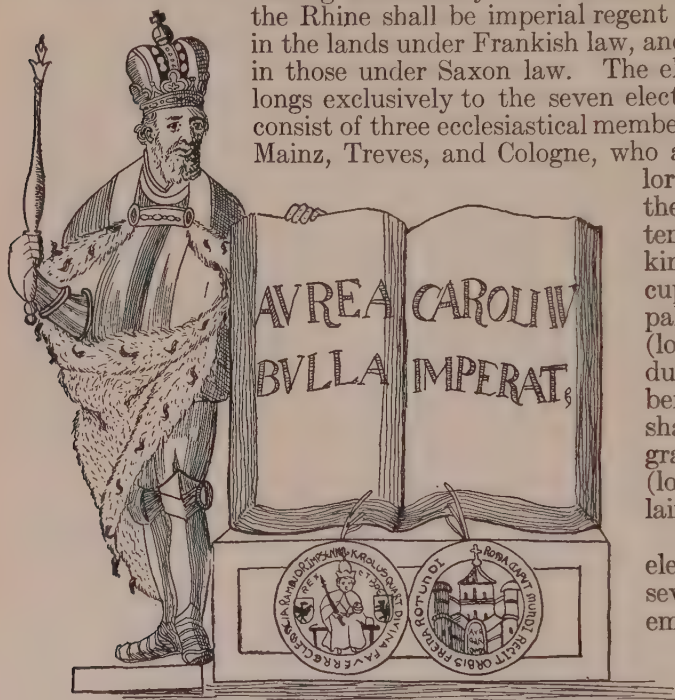 the Rhine shall be imperial regent
in the lands under Frankish law, and
in those under Saxon law. The el
longs exclusively to the seven elect
consist of three ecclesiastical membe
Mainz, Treves, and Cologne, who a
lor
the
ter
kin
cup
pa
(lo
du
ber
sha
gra
(lo
lai
ele
sev
em
AVREA CAROLI IV
BVLLA IMPERAT,
KAROLUS QUARTUS DIVINA FAVE
REX
ROMA CAPUT MUNDI REGIT ORBIS FRENA ROTUNDI